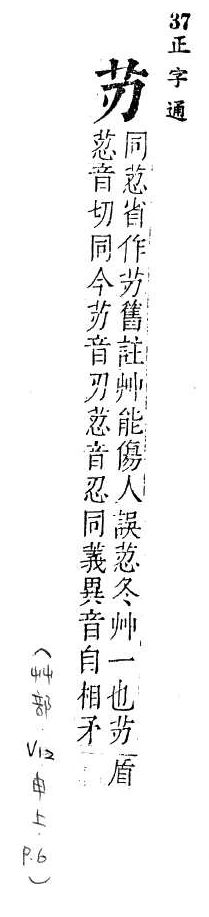 37
正字通
同荵省作舊註艸能傷人誤荵冬艸一也
荵音切同今音刃荵音忍同義異音自相矛
盾
(艸部
V12
申上
P.6)